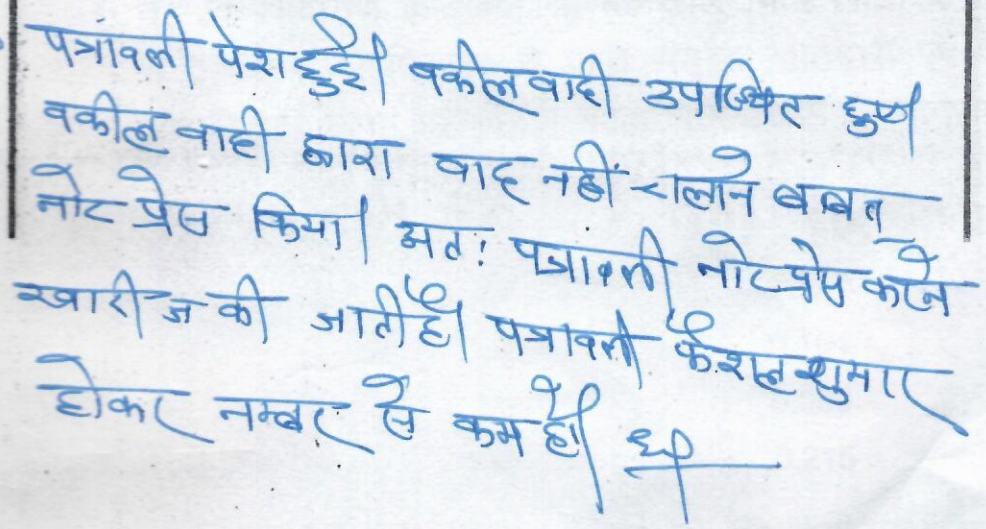 पत्रावली पेश हुई। वकील वादी उपस्थित हुए।
वकील वादी द्वारा वाद नहीं चलाने बाबत्
नोट प्रेस किया। अतः पत्रावली नोट प्रेस करने
खारीज की जाती है। पत्रावली फैशल शुमार
होकर नम्बर से कम हो।